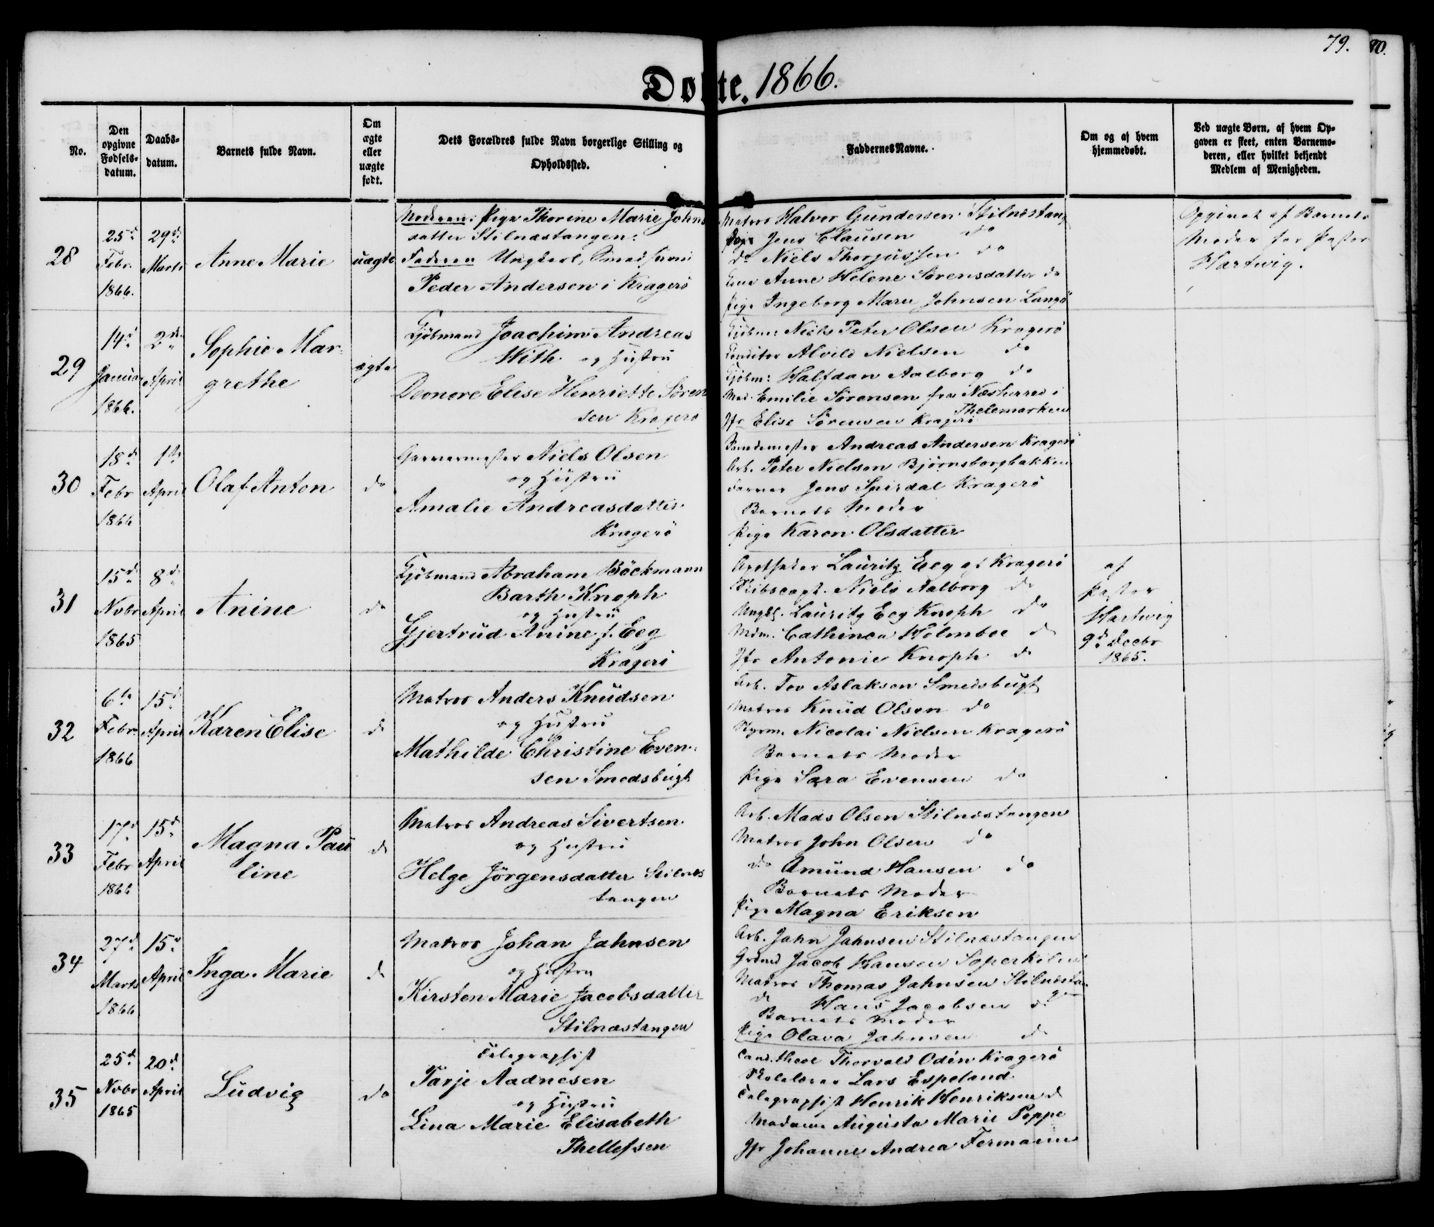 79.
Døbte. 1866.
No.
Den opgivne Fødsels-datum.
Daabs-datum.
Barnets fulde Navn.
Om ægte eller uægte født.
Dets Forældres fulde Navn borgerlige Stilling og Opholdssted.
Faddernes Navne.
Om og af hvem hjemmedøbt.
Ved uægte Børn, af hvem Opgaven er skeet, enten Barnemoderen, eller hvilket bekjendt Medlem af Menigheden.
28
25d Febr. 1866.
29d Marts
Anne Marie
uægte
Moderen: Pige Thorine Marie Johns
datter Stilnæstangen:
Faderen Ungkarl, Smedsvend
Peder Andersen i Kragerø
Matros Halvor Gundersen Stilnæstang
Jens Clausen do
do Niels Thorjussen do
Anne Helene Sørensdatter do
Pige Ingeborg Marie Johnsen Langø
Opgivet af Barnets
Moder for Pastor
Hartwig.
29
14d Januar 1866.
2den April
Sophie Mar-
grethe
ægte
Kjøbmand Joachim Andreas
With og Hustru
Deonore Elise Henriette Søren
sen Kragerø
Kjøbm: Niels Peter Olsen Kragerø
Konditor Alvild Nielsen do
Kjøbm: Halfdan Aalborg do
Mad. Emilie Sørensen fra Næsherred i
Thelemarken
Jfr Elise Sørensen Kragerø
30
18d Febr 1866
1ste April
Olaf Anton
do
Garvermester Niels Olsen
og Hustru
Amalie Andreasdatter
Kragerø
Andreas Andersen Kragerø
Arb. Peter Nielsen Bjørnsborgbakken
Jens Spirdal Kragerø
Barnets Moder
Pige Karen Olsdatter
31
15d Nvbr 1865
8d April
Anine
do
Kjøbmand Abraham Böckmann
Barth Knoph
og Hustru
Gjertrud Anine f. Eeg
Kragerø
Lauritz Eeg af Kragerø
Skibscapt. Niels Aalborg do
Ungk. Lauritz Eeg Knoph do
Mdm. Cathinca Holmboe do
Jfr Antonie Knoph do
af
Pastor
Hartwig
9d Decbr
1865.
32
6te Febr 1866
15d April
Karen Elise
do
Matros Anders Knudsen
og Hustru
Mathilde Christine Even-
sen Smedsbugt
Arb. Tov Aslaksen Smedsbugt
Matros Knud Olsen do
Styrm. Nicolai Nielsen Kragerø
Barnets Moder
Pige Sara Evensen do
33
17d Febr 1866
15d April
Magna Pau
line
do
Matros Andreas Sivertsen
og Hustru
Helge Jörgensdatter Stilnæs
tangen
Arb. Mads Olsen Stilnæstangen
Matros John Olsen do
do Amund Hansen do
Barnets Moder
Pige Magna Eriksen
34
27d Marts 1866
15d April
Inga Marie
do
Matros Johan Jahnsen
og Hustru
Kirsten Marie Jacobsdatter
Stilnæstangen
Arb. Jahn Jahnsen Stilnæstangen
Grdmd Jacob Hansen Soperkilen
Matros Thomas Jahnsen Stilnæstan
gen
do Hans Jacobsen do
Barnets Moder
Pige Olava Jahnsen do
35
25d Nvbr 1865
20d April
Ludvig
do
Telegraphist
Tarje Aadnesen
og Hustru
Lina Marie Elisabeth
Thellefsen
Cand. theol Thorvald Odin Kragerø
Skolelærer Lars Espeland
Telegraphist Henrik Henriksen do
Madame Augusta Marie Peppe
Jfr Johanne Andrea Fermann